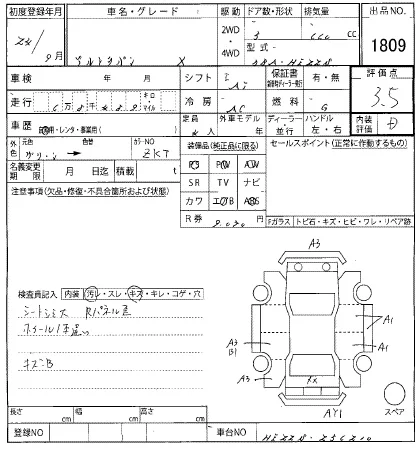 初度登録年月 車名・グレード 駆動 ドア数・形状 排気量 出品NO.
2WD 3 660 cc
9月 アルトラパン X ・
4WD 型式 1809
車検 年 月 シフト 保証書 有・無 評価点
走行 キロ マイル 冷房 AC 燃料 G 3.5
車歴 自家用・レンタ・事業用( ) 定員 4人 外車モデル ディーラー・並行 ハンドル 左・右 内装評価 D
外色 元色 色替 カラーNO ZKT 装備品(純正品に限る) セールスポイント(正常に作動するもの)
名義変更期限 月 日迄 積載 t PS PW AW
注意事項(欠品・修復・不具合箇所および状態) SR TV ナビ
カワ エアB ABS
R券 Fガラス トビ石・キズ・ヒビ・ワレ・リペア跡
A3
検査員記入 内装 汚レ・スレ・キズ・キレ・コゲ・穴
シートシミ大
A1
A3
A1
キズB
A3
XX
AY1
スペア
長さ cm 幅 cm 高さ cm
登録NO 車台NO